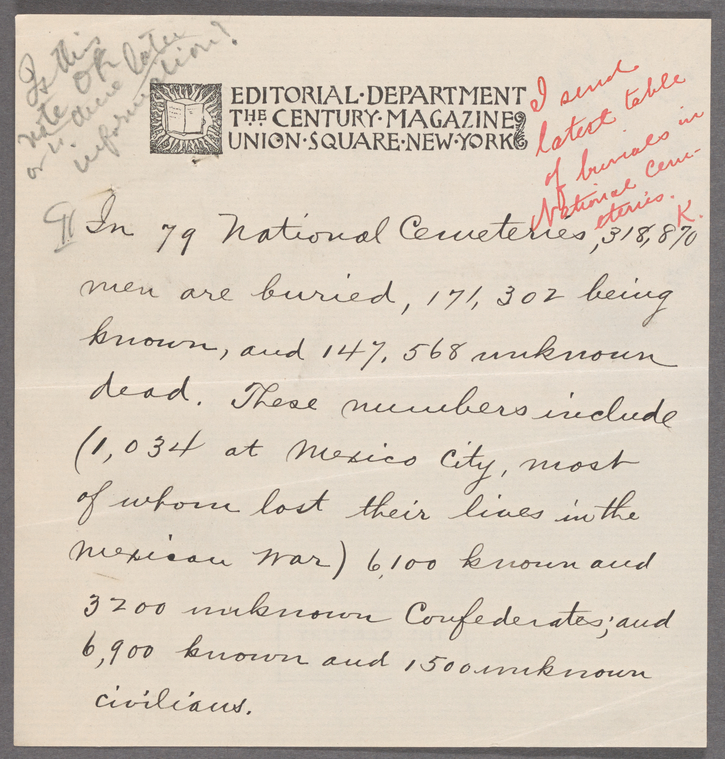 Is this
note OK
or is there later
information?
EDITORIAL·DEPARTMENT
THE CENTURY·MAGAZINE
UNION·SQUARE·NEW·YORK
I send
latest table
of burials in
National Cem-
eteries.
K.
¶ In 79 National Cemeteries, 318,870
men are buried, 171,302 being
known, and 147,568 unknown
dead. These numbers include
(1,034 at Mexico City, most
of whom lost their lives in the
Mexican War) 6,100 known and
3200 unknown Confederates; and
6,900 known and 1500 unknown
civilians.